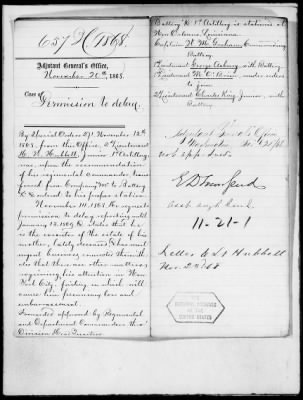 657 H 1868.
Adjutant General's Office,
November 20th, 1868.
Case of
Permission to delay.
By Special Orders 271 November 12th
1868, from the Office, 2 Lieutenant
H. W. Hubbell, Junior 1st Artillery,
was, upon the recommendation of
his regimental commander, trans
ferred from Company M to Battery
K & ordered to his proper station
November 17, 1868. He requests
permission to delay reporting until
January 1869 & states that he
is the executor of the estate of his
mother, lately deceased & has most
urgent business connected therewith
also that there are other matters
requiring his attention in New
York City, failing in which will
cause him pecuniary loss and
embarrassment.
Forwarded approved by Regimental
and Department Commanders thro'
Division Head Quarters
Battery K 1st Artillery is stationed at
New Orleans, Louisiana.
Captain W. M. Graham Commanding
Battery.
1 Lieutenant George Asbury with Battery
Lieutenant under orders
to join
2 Lieutenant Charles King Junior, with
Battery.
Adjutant General's Office
Nov 20/68
E D Townsend
Asst Adjt Genl.
11-21-1
Letter to Lt Hubbell
Nov. 23 /68
THE
NATIONAL ARCHIVES
OF THE
UNITED STATES